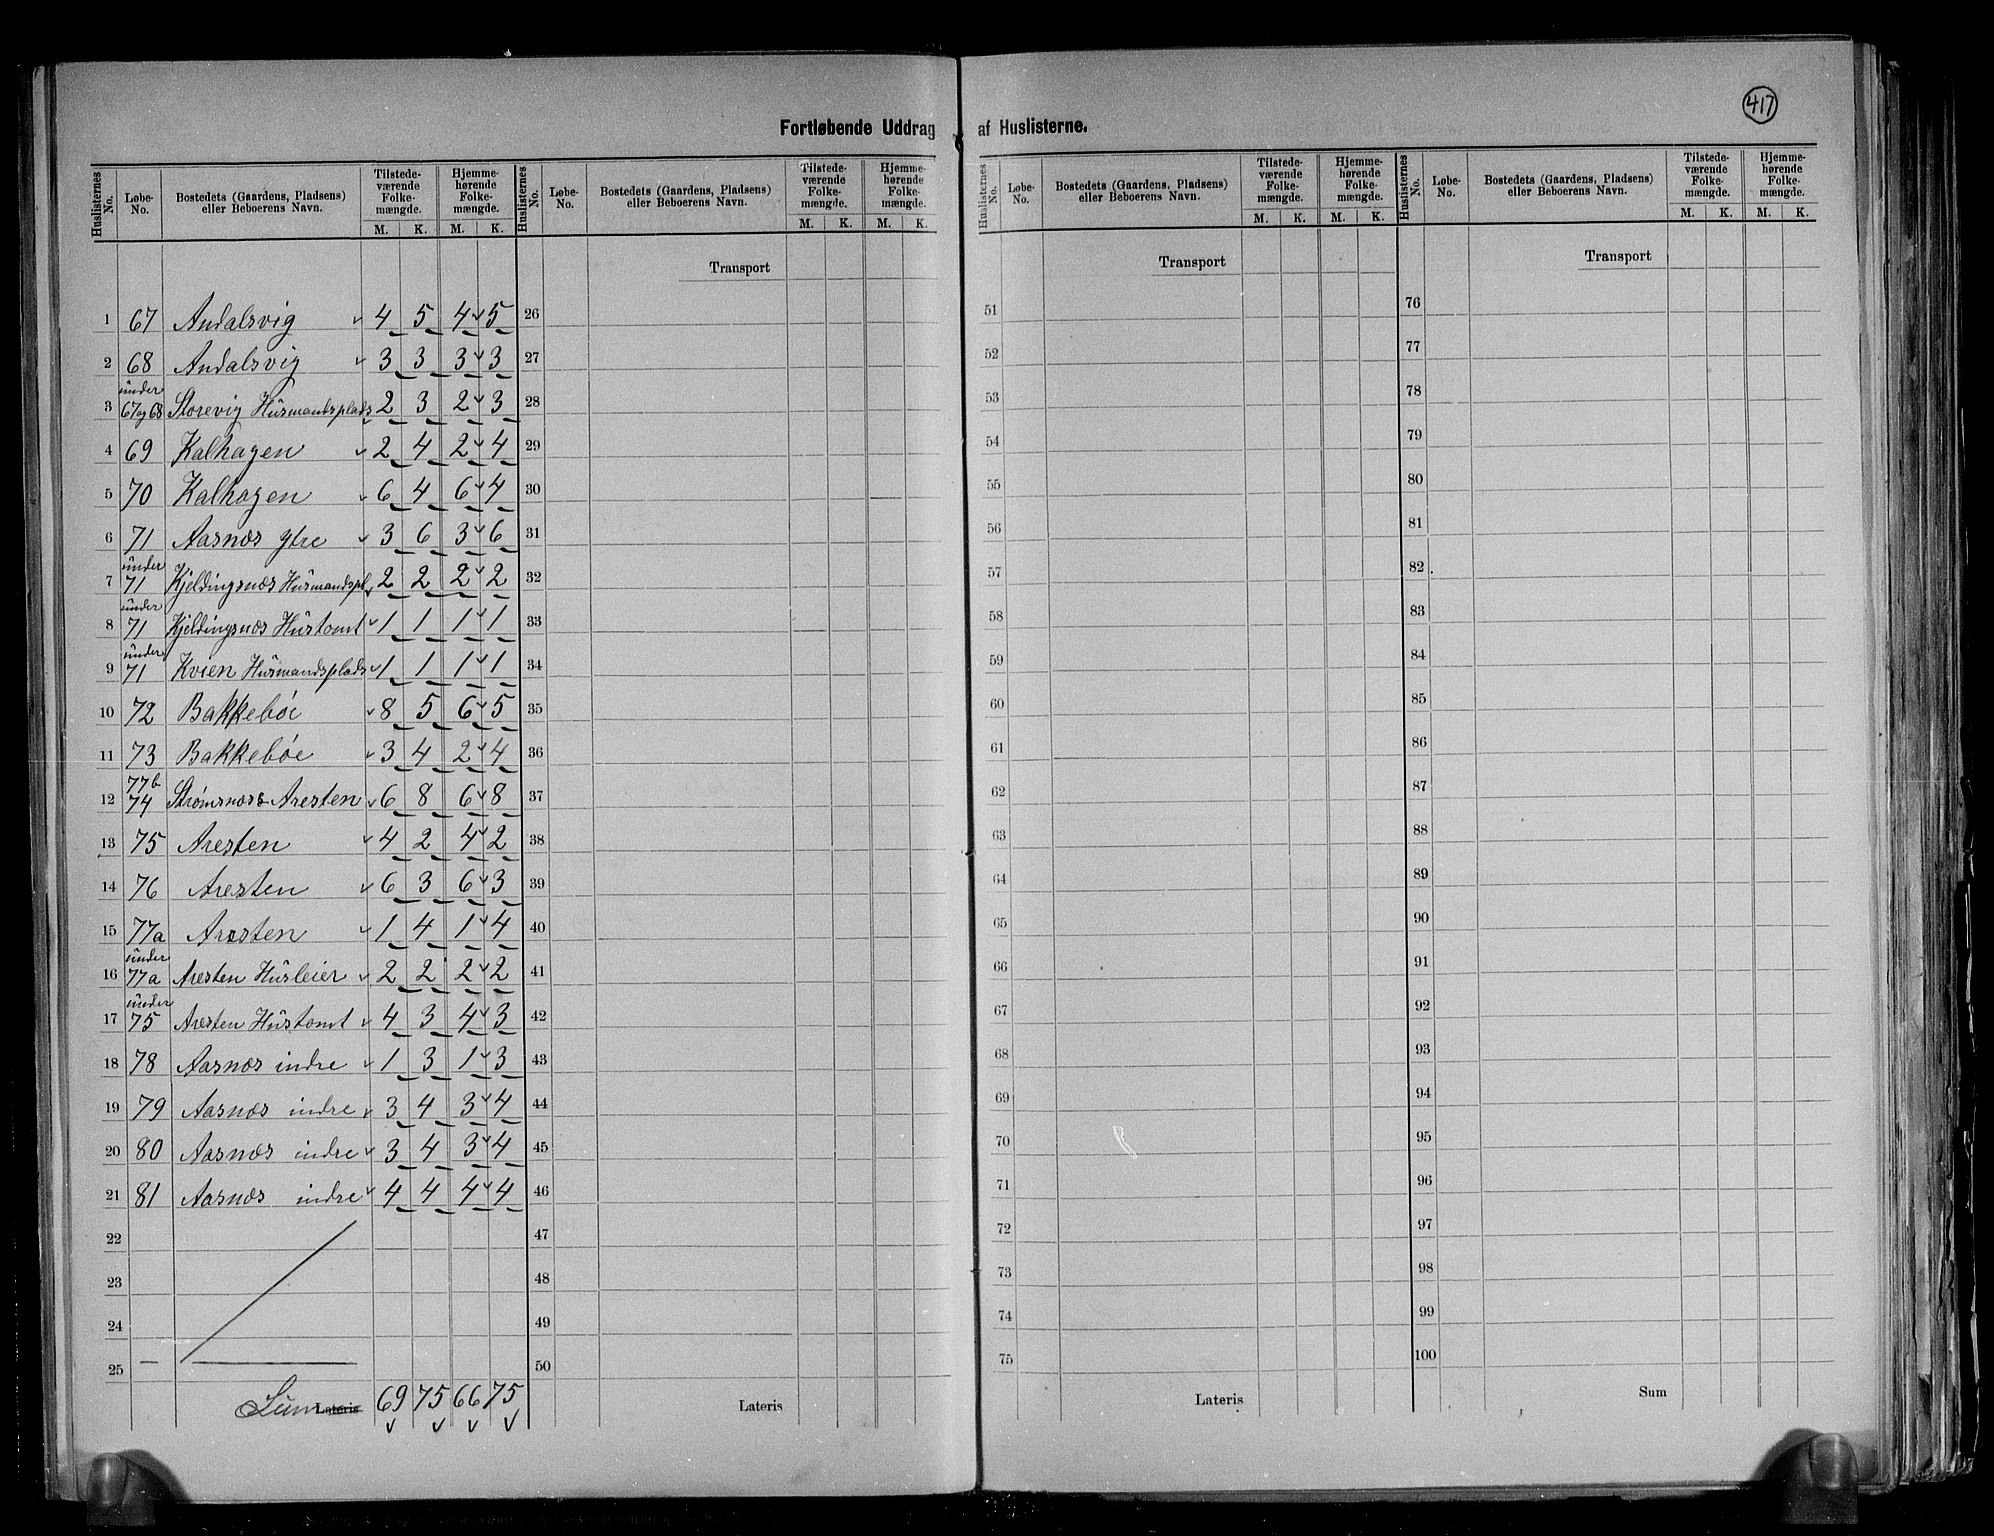 417
Fortløbende Uddrag af Huslisterne.
Huslisternes No. | Løbe-No. | Bostedets (Gaardens, Pladsens) eller Beboerens Navn. | Tilstedeværende Folkemængde. M. K. | Hjemmehørende Folkemængde. M. K.
Transport
1 67 Andalsvig 4 5 4 5
2 68 Andalsvig 3 3 3 3
3 under 67 og 68 Storevig Husmandsplads 2 3 2 3
4 69 Kalhagen 2 4 2 4
5 70 Kalhagen 6 4 6 4
6 71 Aasnæs ytre 3 6 3 6
7 under 71 Kjeldingsnæs Husmandspl. 2 2 2 2
8 under 71 Kjeldingsnæs Hustomt 1 1 1 1
9 under 71 Kvien Husmandsplads 1 1 1 1
10 72 Bakkebøe 8 5 6 5
11 73 Bakkebøe 3 4 2 4
12 77b 74 Strømsnæs & Aresten 6 8 6 8
13 75 Aresten 4 2 4 2
14 76 Aresten 6 3 6 3
15 77a Aresten 1 4 1 4
16 under 77a Aresten Husleier 2 2 2 2
17 under 75 Aresten Hustomt 4 3 4 3
18 78 Aasnæs indre 1 3 1 3
19 79 Aasnæs indre 3 4 3 4
20 80 Aasnæs indre 3 4 3 4
21 81 Aasnæs indre 4 4 4 4
22
23
24
25 —
Sum Lateris 69 75 66 75
Huslisternes No. | Løbe-No. | Bostedets (Gaardens, Pladsens) eller Beboerens Navn. | Tilstedeværende Folkemængde. M. K. | Hjemmehørende Folkemængde. M. K.
Transport
26
27
28
29
30
31
32
33
34
35
36
37
38
39
40
41
42
43
44
45
46
47
48
49
50
Lateris
Huslisternes No. | Løbe-No. | Bostedets (Gaardens, Pladsens) eller Beboerens Navn. | Tilstedeværende Folkemængde. M. K. | Hjemmehørende Folkemængde. M. K.
Transport
51
52
53
54
55
56
57
58
59
60
61
62
63
64
65
66
67
68
69
70
71
72
73
74
75
Lateris
Huslisternes No. | Løbe-No. | Bostedets (Gaardens, Pladsens) eller Beboerens Navn. | Tilstedeværende Folkemængde. M. K. | Hjemmehørende Folkemængde. M. K.
Transport
76
77
78
79
80
81
82
83
84
85
86
87
88
89
90
91
92
93
94
95
96
97
98
99
100
Sum